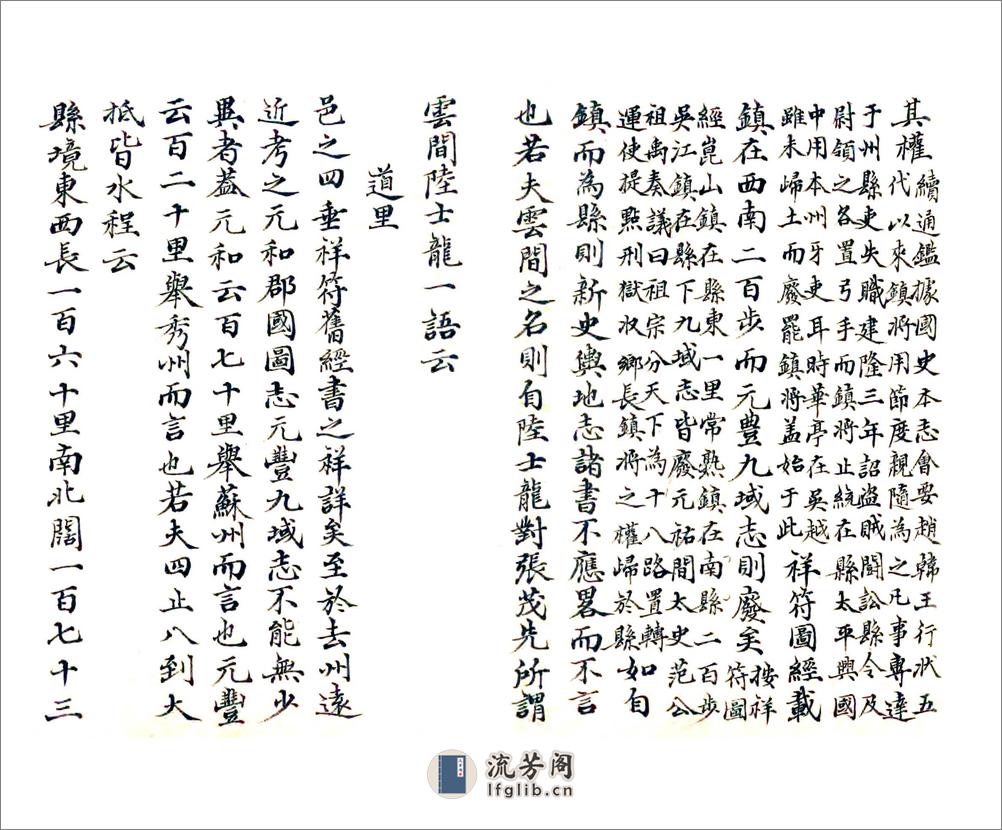 其權
續通鑑據國史本志會要趙韓王行狀五
代以來鎮將用節度親隨為之凡事專達
于州縣吏失職建隆三年詔盜賊鬪訟縣令及
尉領之各置弓手而鎮將止統在縣太平興國
中用本州牙吏耳時華亭在吳越
雖未歸土而廢罷鎮將盖始于此
祥符圖經載
鎮在西南二百步而元豊九域志則廢矣
按祥
符圖
經崑山鎮在縣東一里常熟鎮在南縣二百步
吳江鎮在縣下九域志皆廢元祐間太史范公
祖禹奏議曰祖宗分天下為十八路置轉
運使提點刑獄收鄉長鎮將之權歸於縣
如自
鎮而為縣則新史輿地志諸書不應畧而不言
也若夫雲間之名則自陸士龍對張茂先所謂
雲間陸士龍一語云
道里
邑之四垂祥符舊經書之祥詳矣至於去州遠
近考之元和郡國圖志元豐九域志不能無少
異者葢元和云百七十里舉蘇州而言也元豐
云百二十里舉秀州而言也若夫四止八到大
抵皆水程云
縣境東西長一百六十里南北闊一百七十三
流芳阁
lfglib.cn